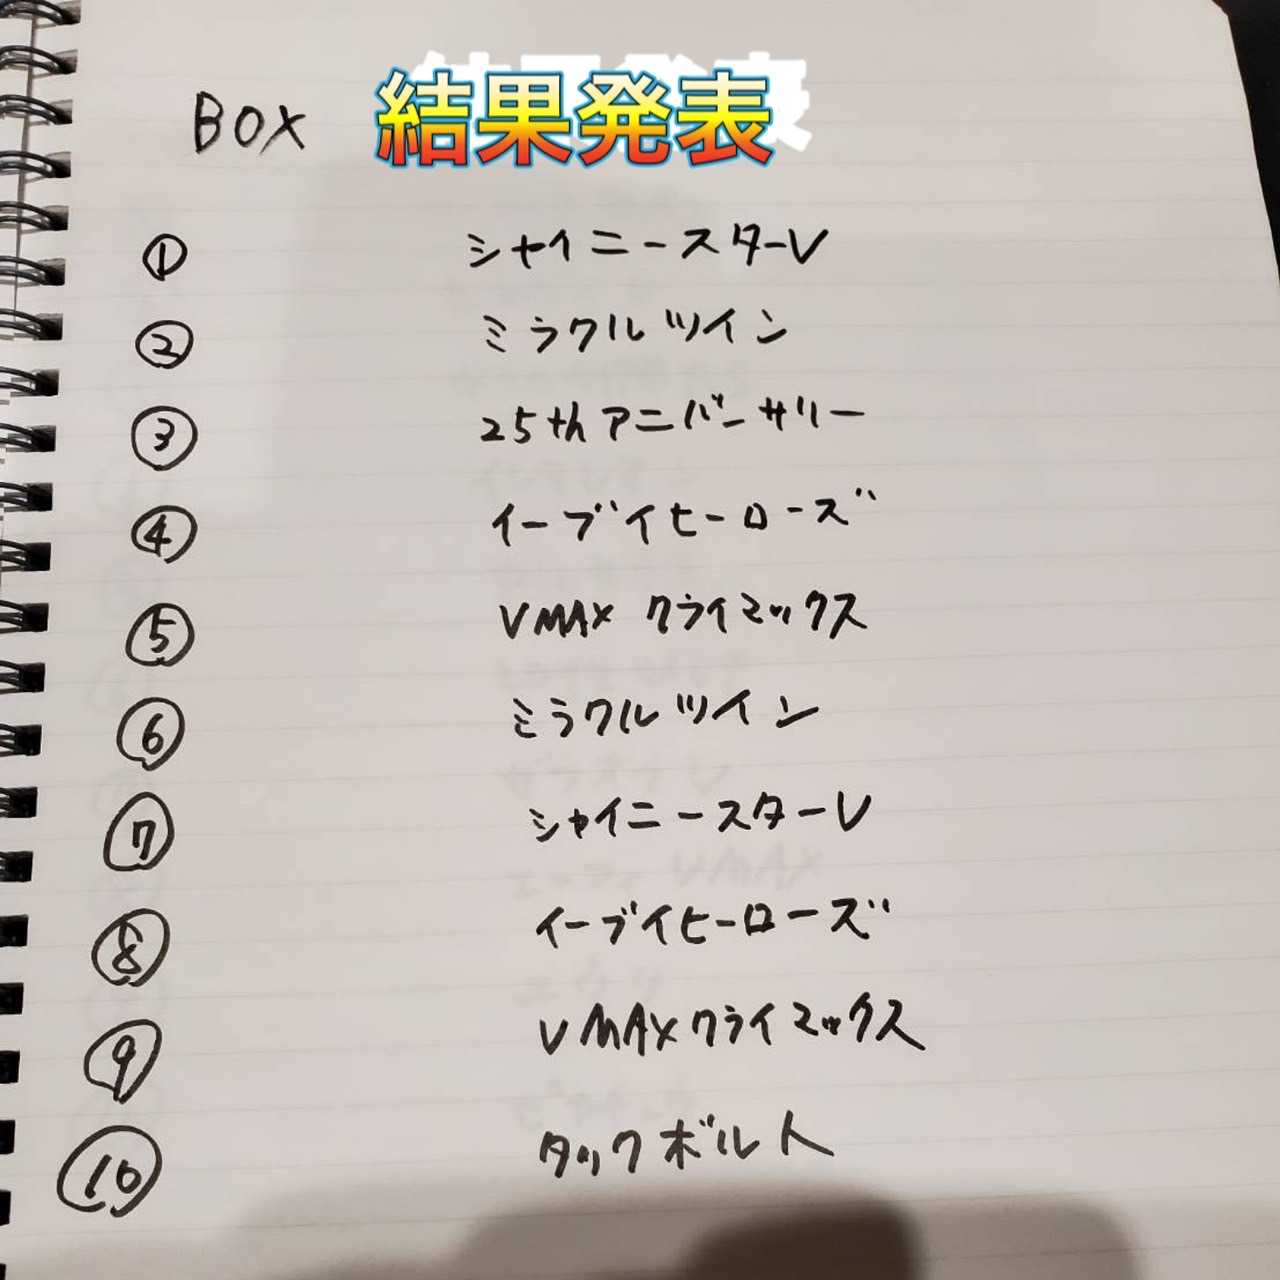 BOX 結果発表
① シャイニースターV
② ミラクルツイン
③ 25thアニバーサリー
④ イーブイヒーローズ
⑤ VMAX クライマックス
⑥ ミラクルツイン
⑦ シャイニースターV
⑧ イーブイヒーローズ
⑨ VMAXクライマックス
⑩ タッグボルト